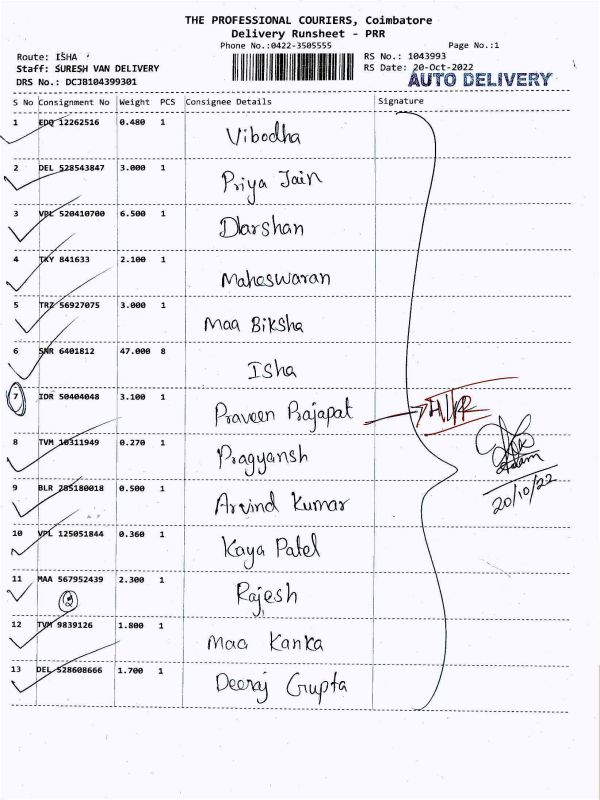 THE PROFESSIONAL COURIERS, Coimbatore
Delivery Runsheet - PRR
Phone No.:0422-3505555 Page No.:1
Route: ISHA RS No.: 1043993
Staff: SURESH VAN DELIVERY RS Date: 20-Oct-2022
DRS No.: DCJB104399301 AUTO DELIVERY
S No Consignment No Weight PCS Consignee Details Signature
1 EDQ 12262516 0.480 1 Vibodha
2 DEL 528543847 3.000 1 Priya Jain
3 VPL 520410700 6.500 1 Darshan
4 TKY 841633 2.100 1 Maheswaran
5 TRZ 56927075 3.000 1 Maa Biksha
6 SNR 6401812 47.000 8 Isha
7 IDR 50404048 3.100 1 Praveen Prajapat
8 TVM 10311949 0.270 1 Pragyansh
20/10/22
9 BLR 285180018 0.500 1 Arvind Kumar
10 VPL 125051844 0.360 1 Kaya Patel
11 MAA 567952439 2.300 1 Rajesh
2
12 TVM 9839126 1.800 1 Maa Kanka
13 DEL 528608666 1.700 1 Deeraj Gupta